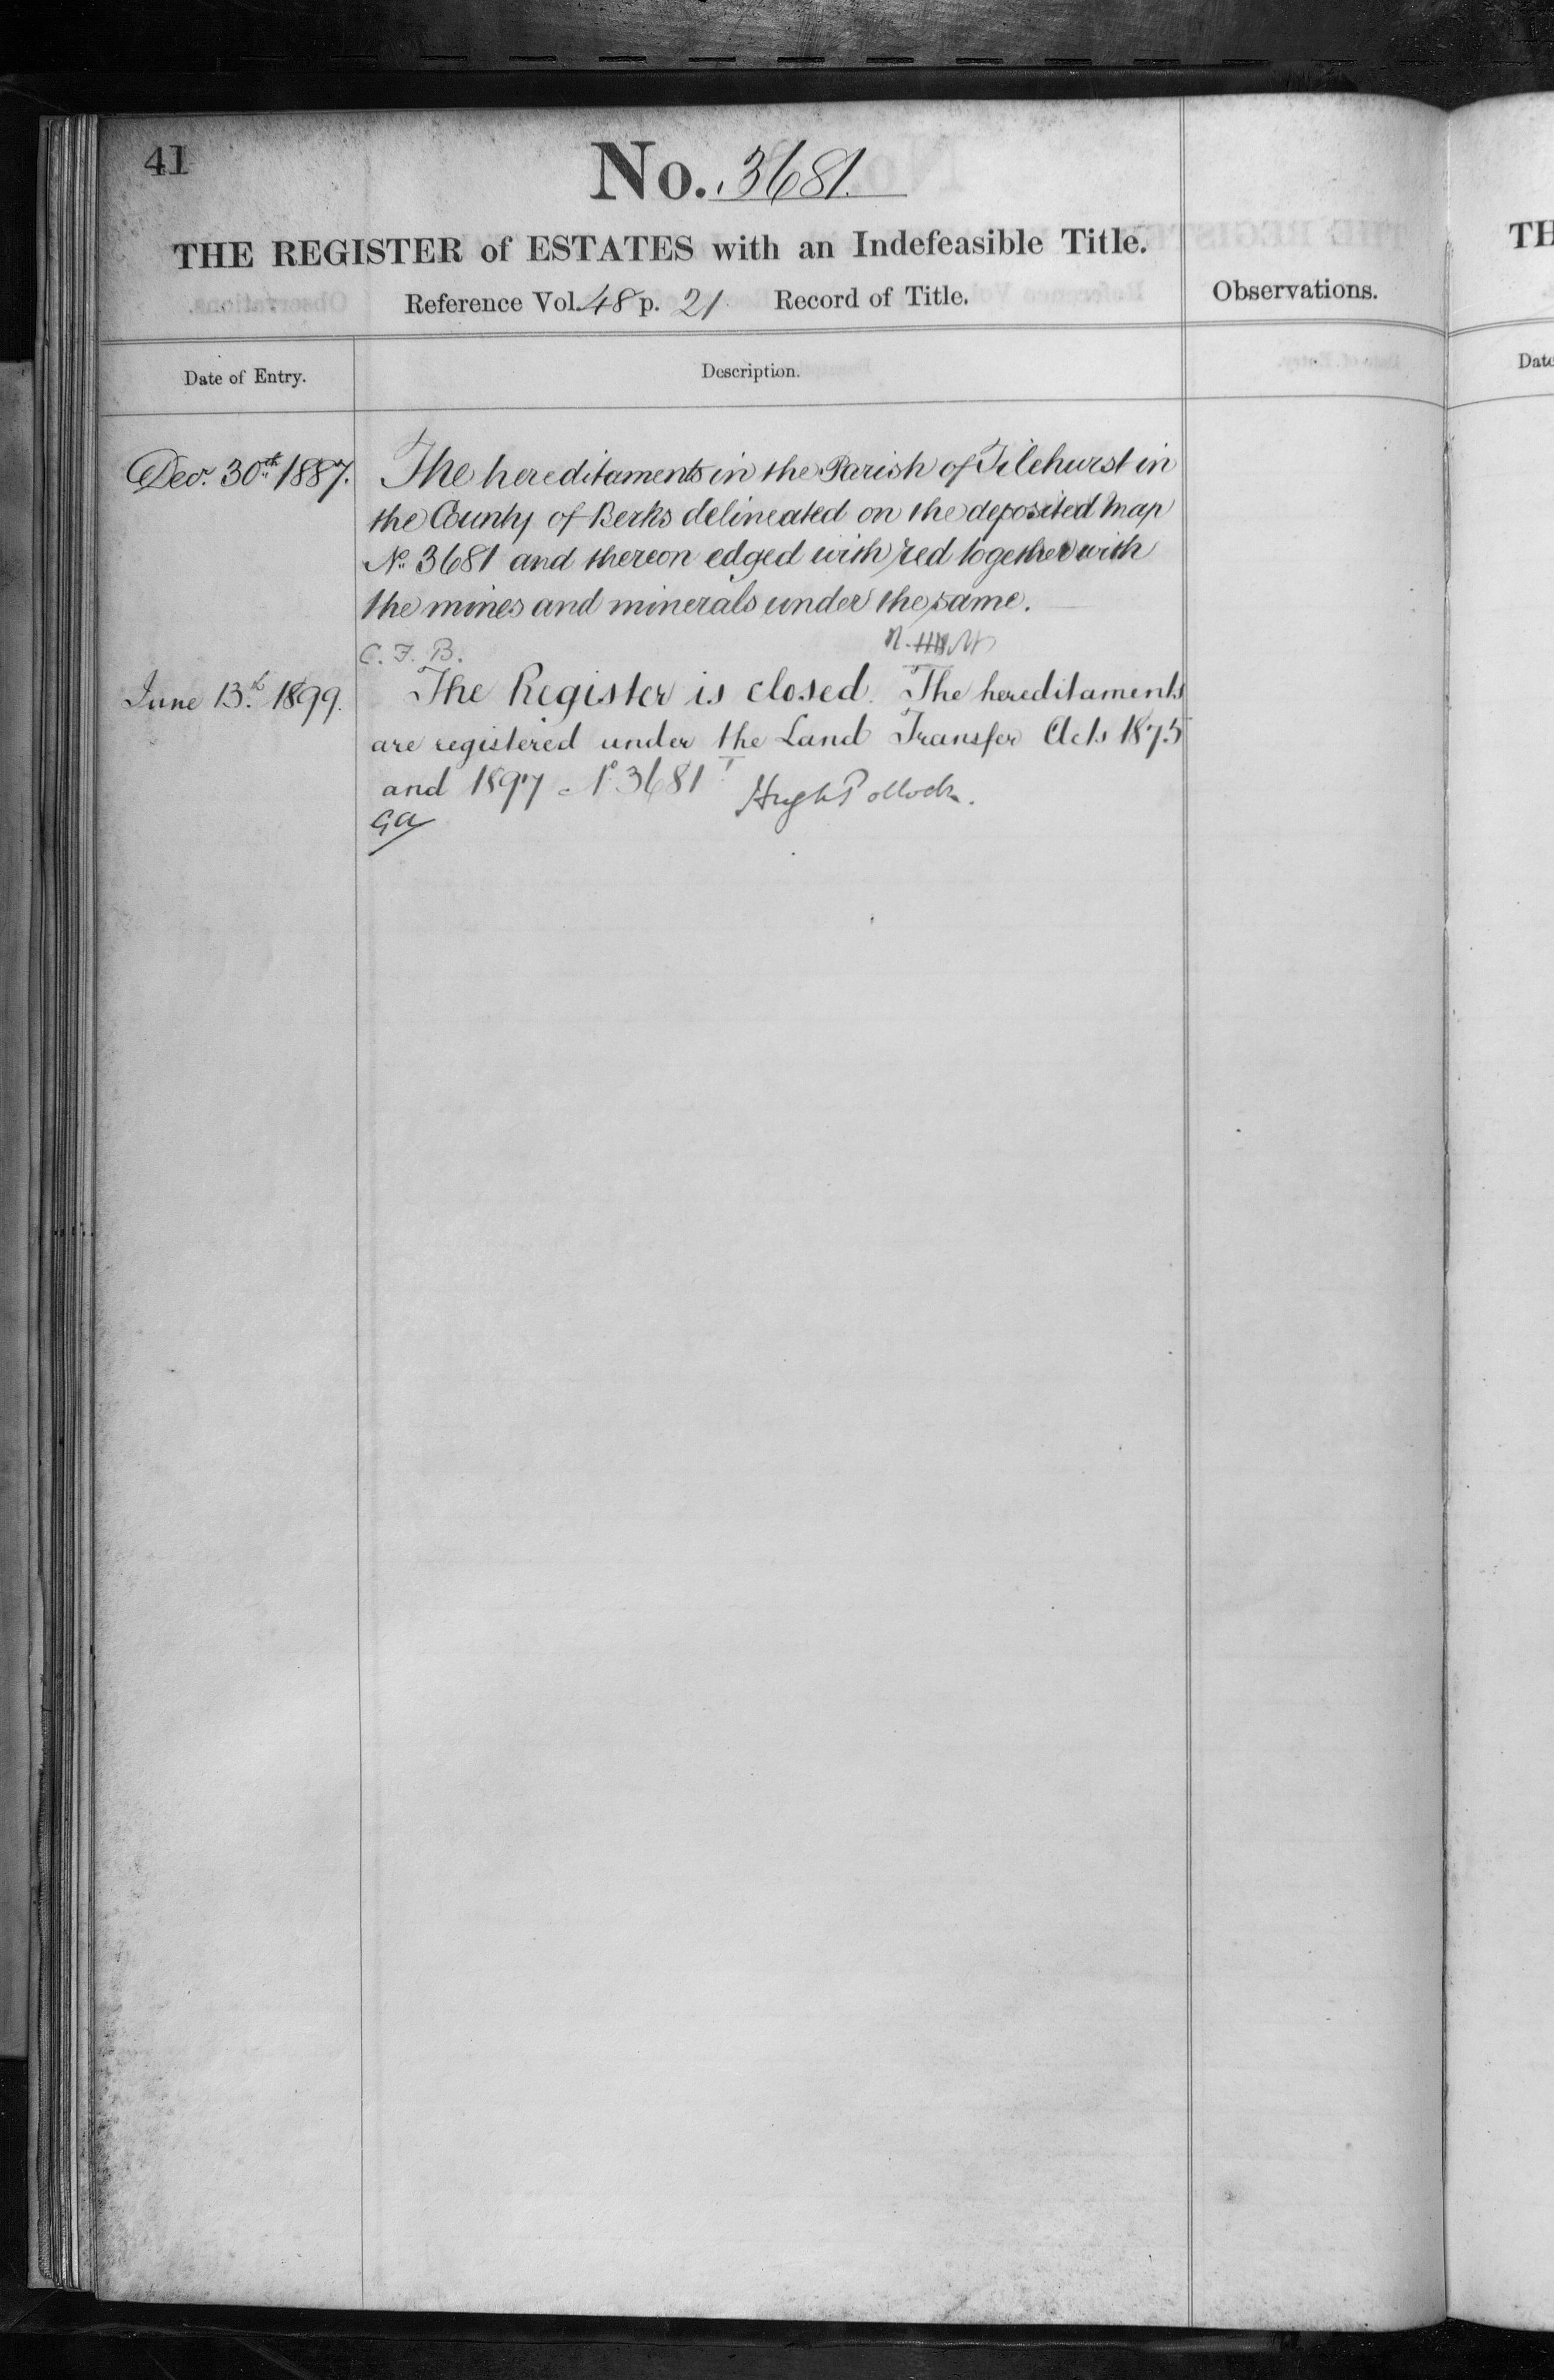 41
No. 3681.
THE REGISTER of ESTATES with an Indefeasible Title.
Reference Vol. 48 p. 21 Record of Title.
Observations.
Date of Entry.
Description.
Decr. 30th 1887.
The hereditaments in the Parish of Tilehurst in
the County of Berks delineated on the deposited Map
No. 3681 and thereon edged with red together with
the mines and minerals under the same.
C. F. B.
June 13th 1899.
The Register is closed. The hereditaments
are registered under the Land Transfer Acts 1875
and 1897 No 3681
Hugh Pollock.
GA
TH
Date